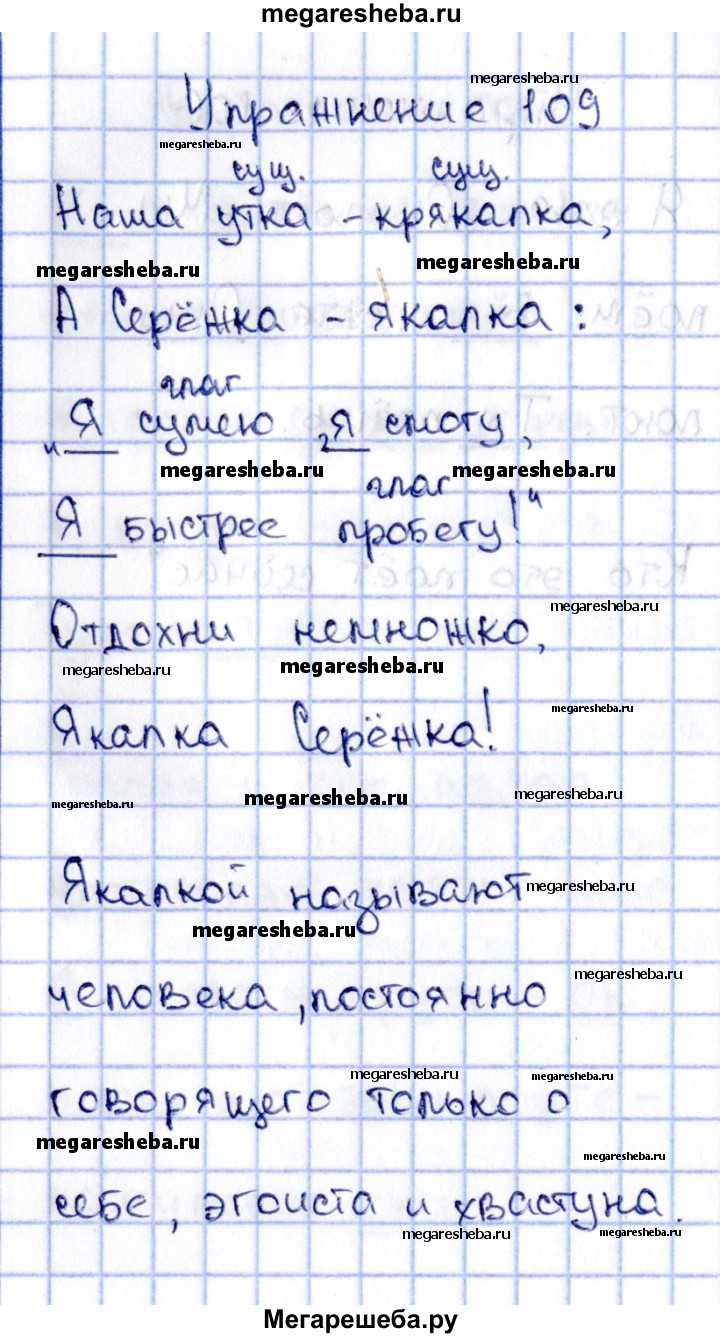 megaresheba.ru
megaresheba.ru
Упражнение 109
megaresheba.ru
сущ. сущ.
Наша утка – крякалка,
megaresheba.ru megaresheba.ru
А Серёжка – якалка:
глаг
„Я сумею, я смогу,
megaresheba.ru megaresheba.ru
глаг
Я быстрее пробегу!“
megaresheba.ru
Отдохни немножко,
megaresheba.ru megaresheba.ru
megaresheba.ru
Якалка Серёжка!
megaresheba.ru megaresheba.ru megaresheba.ru
Якалкой называют
megaresheba.ru
megaresheba.ru
megaresheba.ru
человека, постоянно
megaresheba.ru megaresheba.ru
говорящего только о
megaresheba.ru
megaresheba.ru
себе, эгоиста и хвастуна.
megaresheba.ru megaresheba.ru
Мегарешеба.ру